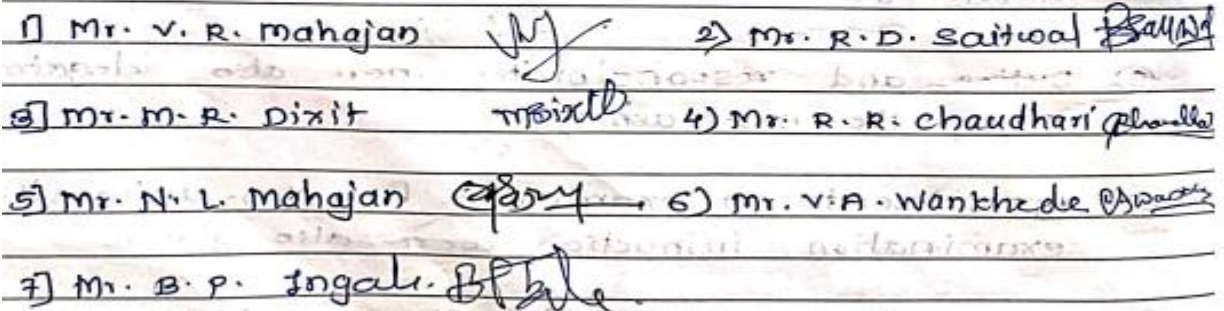 1] Mr. V. R. Mahajan 2) Mr. R. D. Saitwal
3] Mr. M. R. Dixit 4) Mr. R. R. Chaudhari
5] Mr. N. L. Mahajan 6) Mr. V. A. Wankhede
7] Mr. B. P. Ingale.